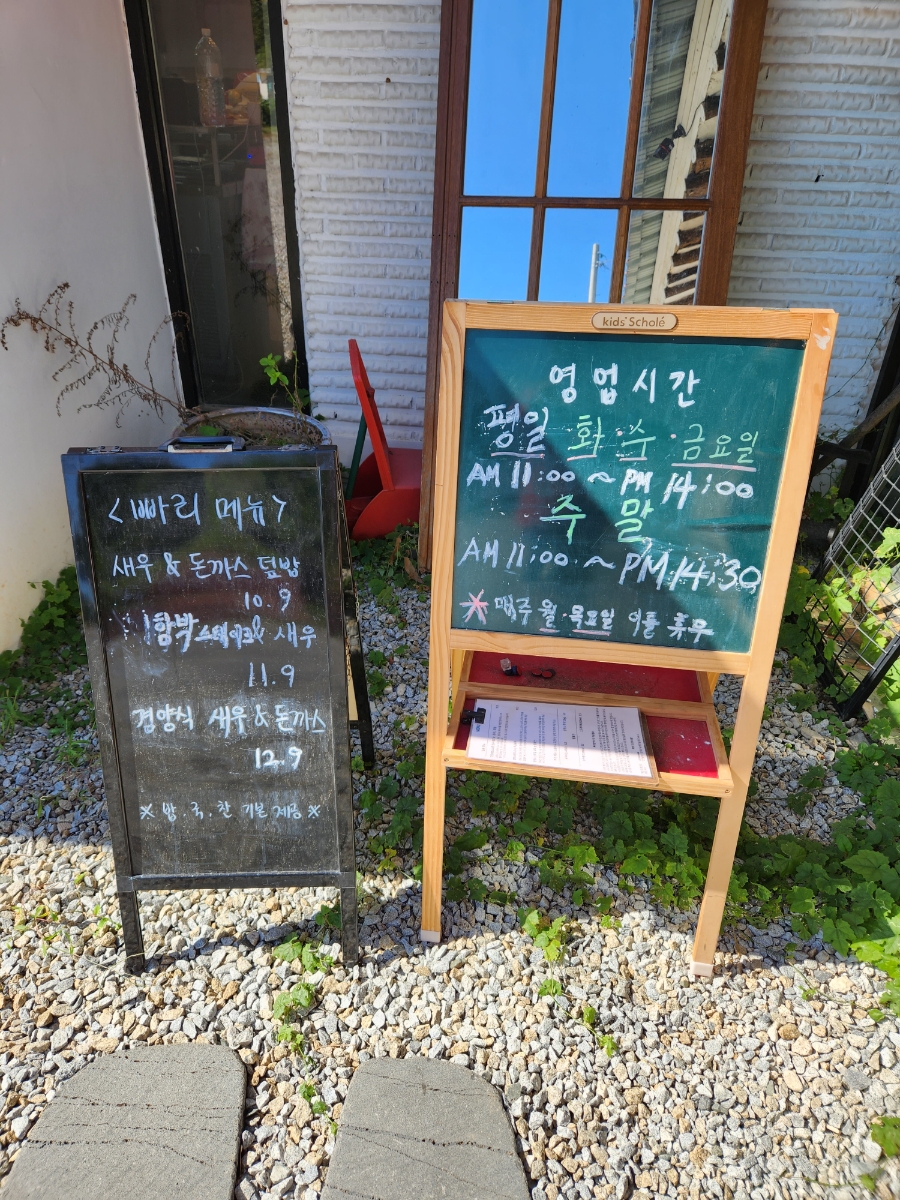 <빠리 메뉴>
새우 & 돈까스 덮밥
10.9
함박스테이크 & 새우
11.9
경양식 새우 & 돈까스
12.9
※ 밥, 국, 찬 기본 제공 ※
kids' Scholé
영업시간
평일 화·수·금요일
AM 11:00 ~ PM 14:00
주말
AM 11:00 ~ PM 14:30
매주 월·목요일 이틀 휴무